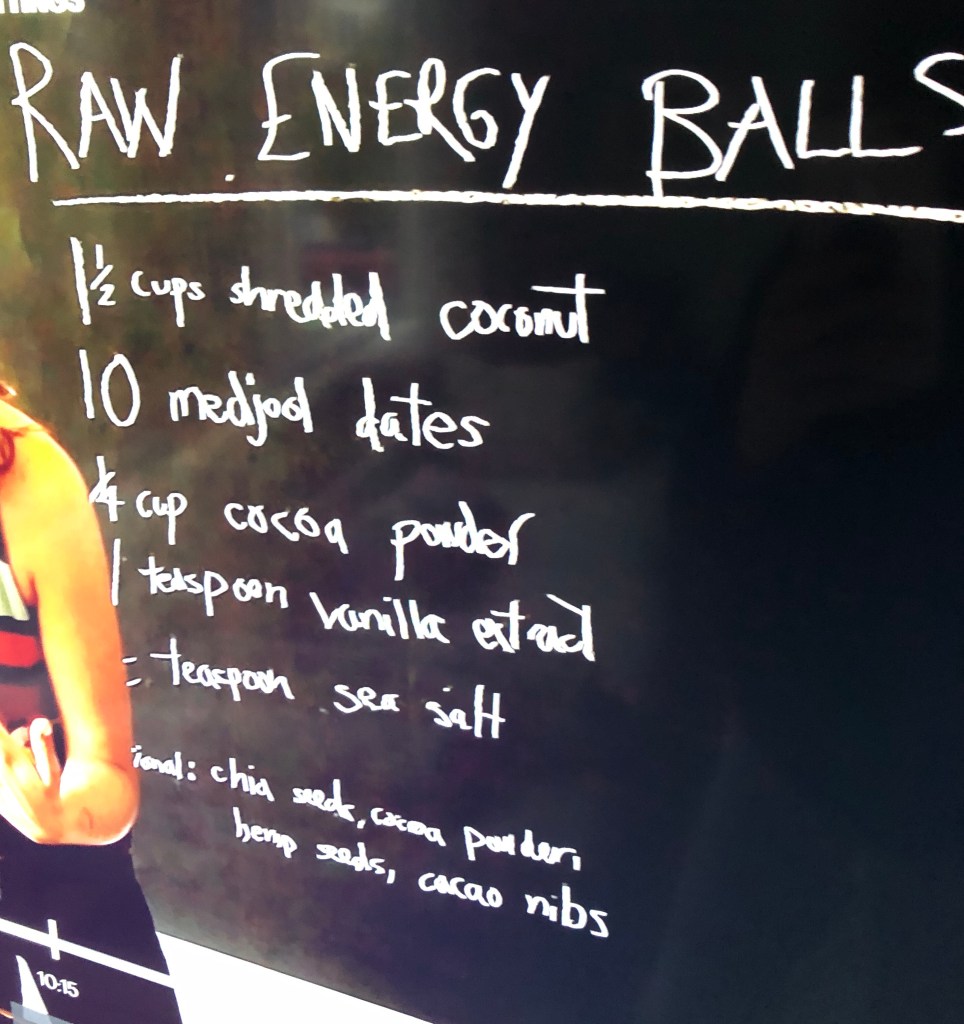 RAW ENERGY BALLS
1 1/2 cups shredded coconut
10 medjool dates
cup cocoa powder
1 teaspoon vanilla extract
teaspoon sea salt
chia seeds, cocoa powder,
hemp seeds, cacao nibs
10:15